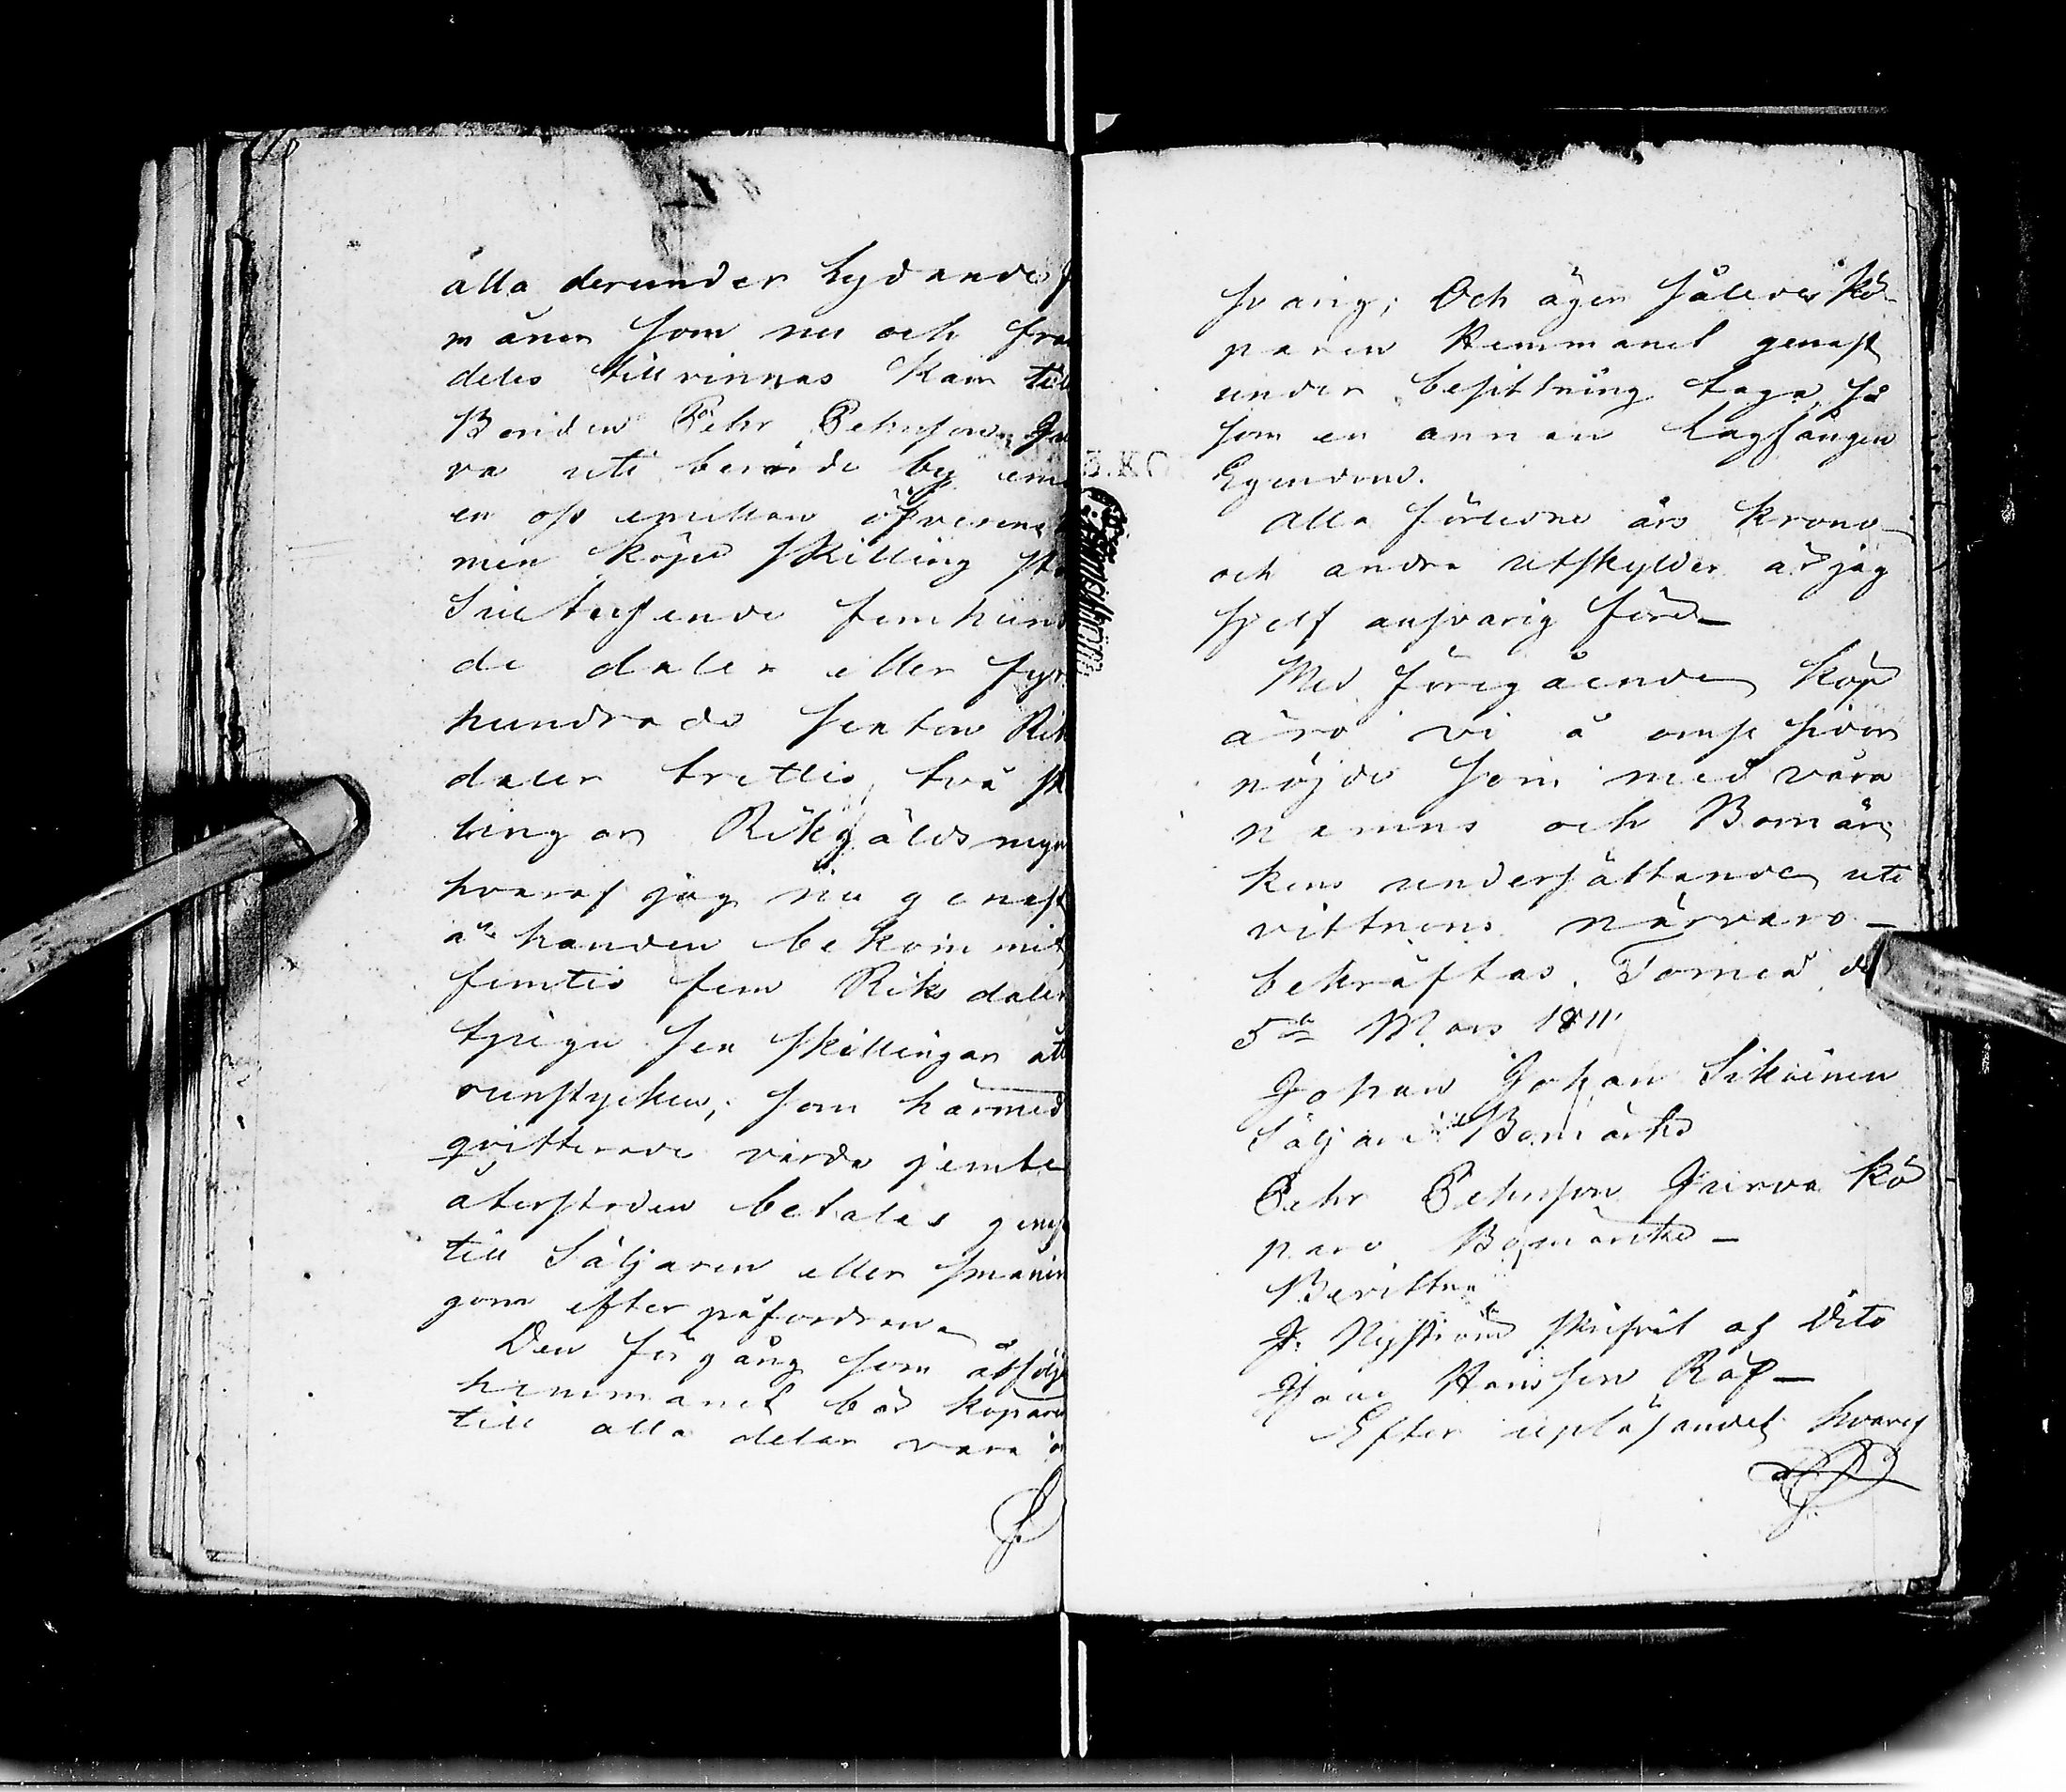 alla derunder lydande f
måner som nu och fra
deles tillvinnas kan till
Bonden Pehr Pehrsson Ju
va uti berörde by em
en oss emellan öfverens
men köpe skilling st
Sjutusende femhund
de daler eller fyr
hundrade sexton Rik
daler trettio två sk
lingar Riksgälds myn
hvaraf jag nu genast
å handen bekommit
femtio fem Riks daler
tjugu sex skillingar ått
runstycken; som härmed
qvitterade varda jemte
återstoden betales genas
till Säljaren eller smånin
gom efter påfordran
Den förgång som åtfölje
hemmanet bör köparen
till alla delar vara an
svarig; Och äger således Kö-
paren Hemmanet genast
under besittning taga så
som en annan lagfången
Egendom.
Alla förledne års krono-
och andre utskylder är jag
sjelf ansvarig före-
Med föregående köp
äro vi å ömse sidor
nöjde som med våra
namns och Bomär-
kens undersättande uti
vittnens närvaro-
bekräftas. Torneå d
5te Mars 1811
Johan Johan Sikainen
Säljare Bomärke
Pehr Pehrsson Jurva Kö
pare Bomärke-
Bevittna
J. Nyström skrifvit af Dito
Isac Hansson Räf-
Efter upläsandet hvaraf